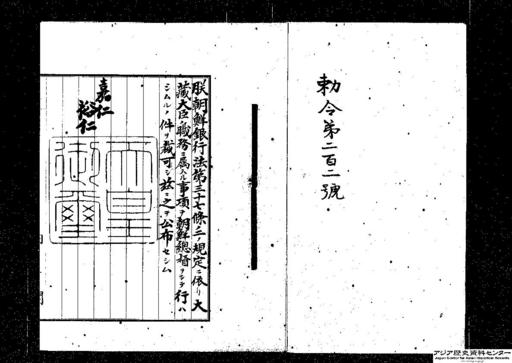 勅令第二百二號
朕朝鮮銀行法第三十七條ノ二ノ規定ニ依リ大
藏大臣ノ職務ニ屬スル事項ヲ朝鮮總督ヲシテ行ハ
シムルノ件ヲ裁可シ茲ニ之ヲ公布セシム
嘉仁
裕仁
天皇
御璽
アジア歴史資料センター
Japan Center for Asian Historical Records